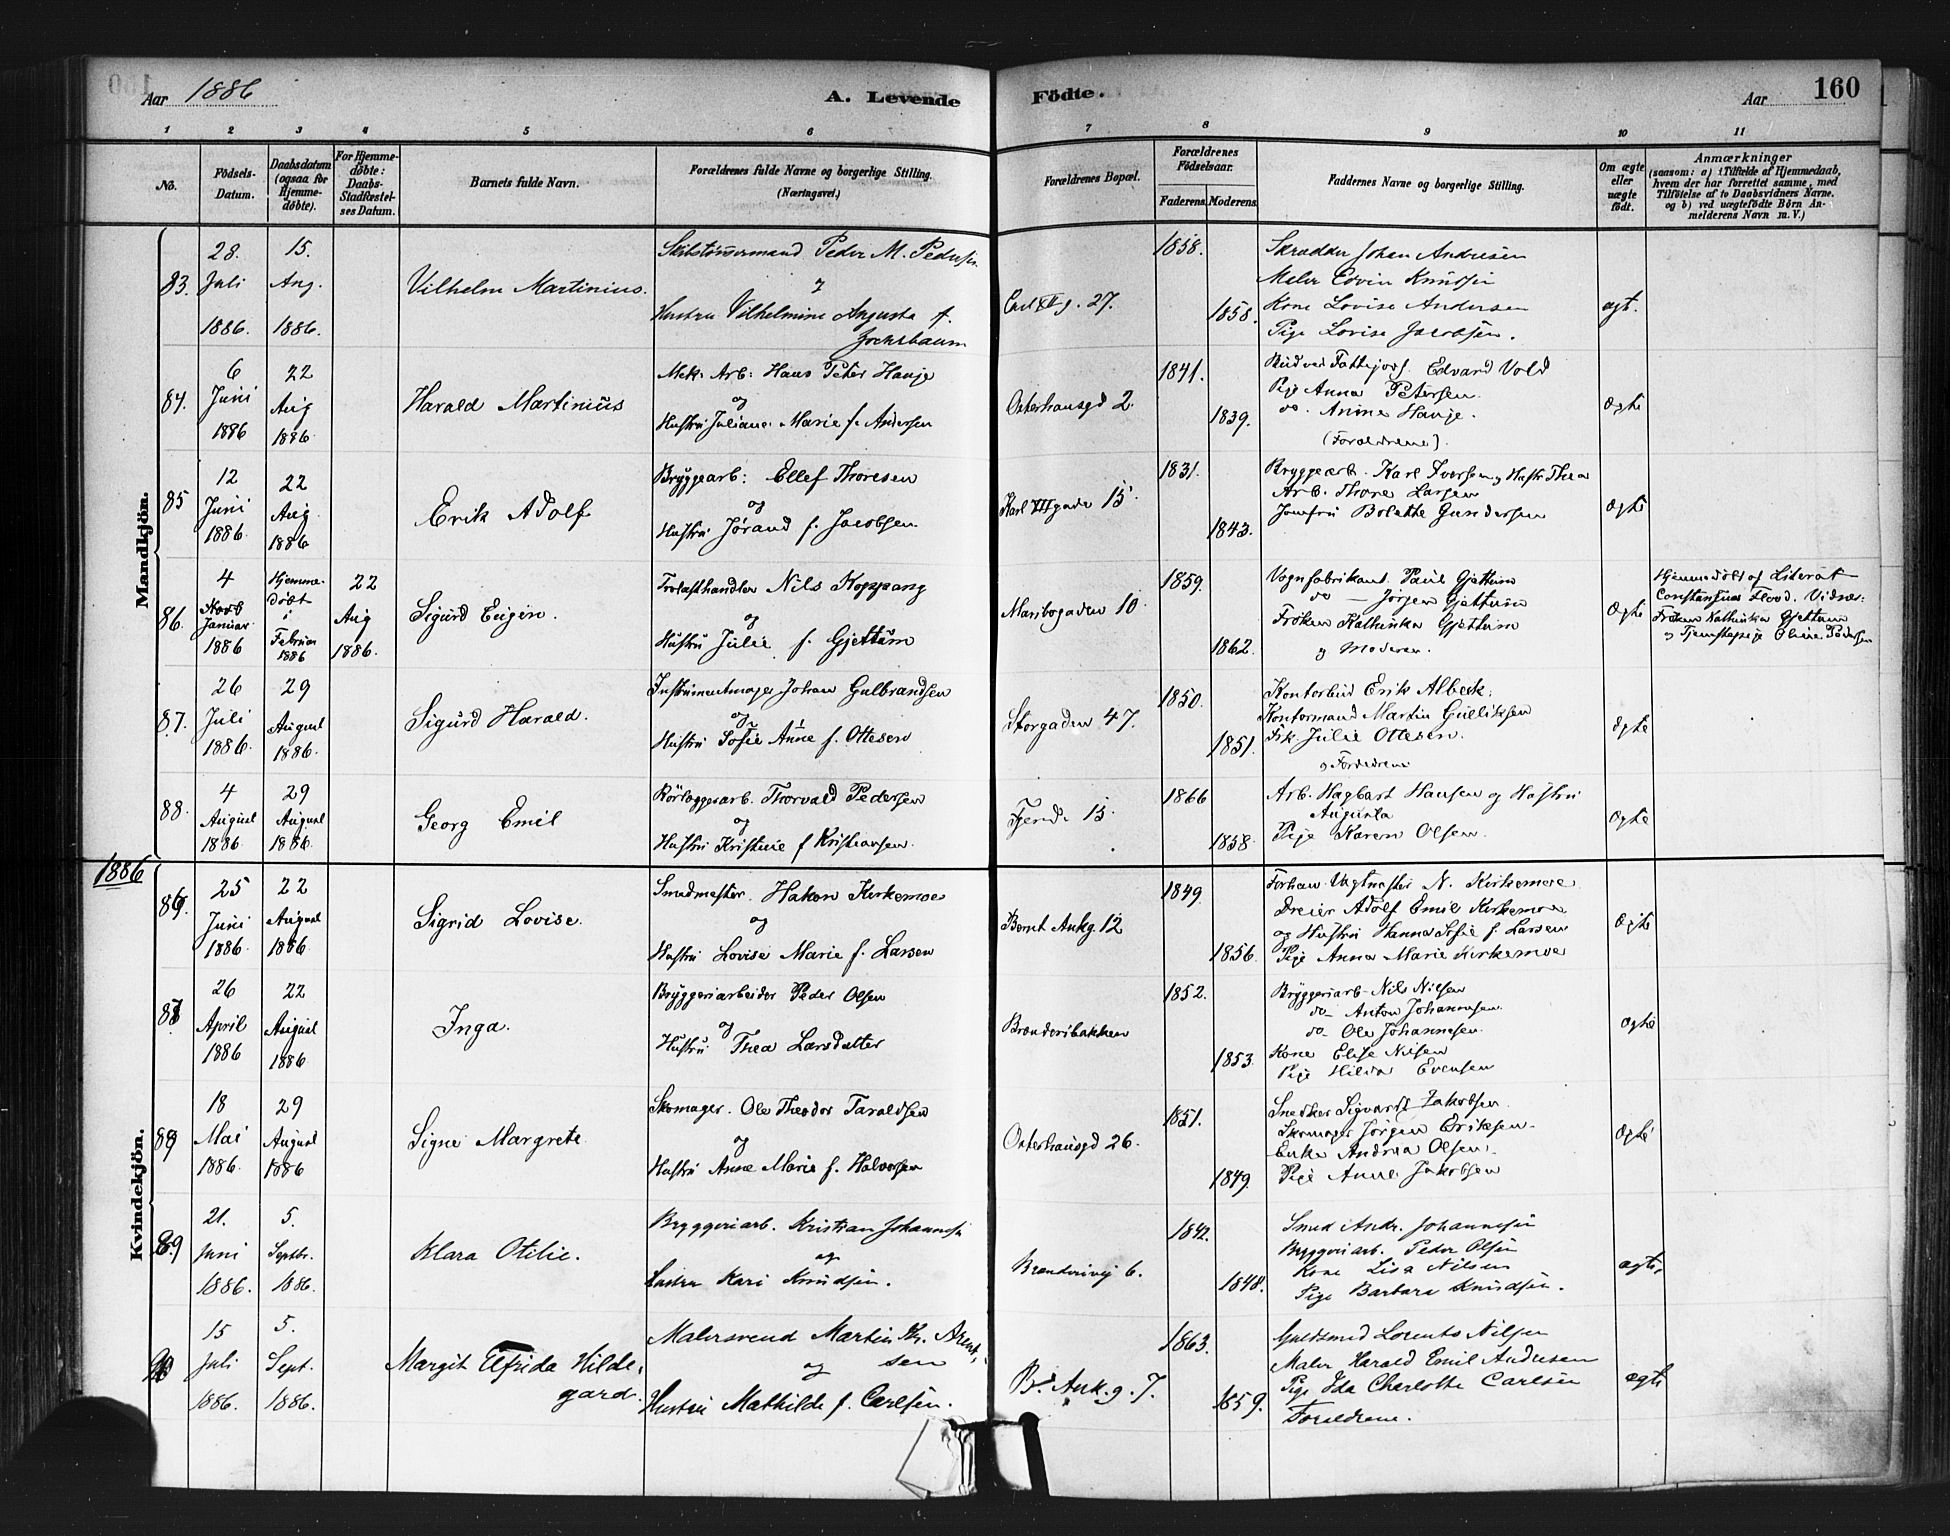 Aar 1886
A. Levende
Födte.
Aar
160
1 2 3 4 5 6 7 8 9 10 11
No.
Födsels-Datum.
Daabsdatum (ogsaa for Hjemme-döbte).
For Hjemme-döbte: Daabs-Stadfæstel-ses Datum.
Barnets fulde Navn.
Forældrenes fulde Navne og borgerlige Stilling. (Næringsvei.)
Forældrenes Bopæl.
Forældrenes Födselsaar.
Faderens. Moderens.
Faddernes Navne og borgerlige Stilling.
Om ægte eller uægte födt.
Anmærkninger
(saasom: a) i Tilfælde af Hjemmedaab, hvem der har forrettet samme, med Tilföielse af to Daabsvidners Navne, og b) ved uægtefödte Börn Anmelderens Navn m. V.)
Mandkjön.
83.
28. Juli 1886.
15. Aug. 1886.
Vilhelm Martinius.
Skibstömmermand Peder M. Pedersen
og
Hustru Vilhelmine Augusta f.
Carl XII g. 27.
1858.
1858.
Skrædder Johan Andresen
Maler Edvin Knudsen
Kone Lovise Andersen
Pige Lovise Jacobsen.
ægt.
84.
6 Juni 1886
22 Aug 1886.
Harald Martinius
Mek: Arb: Hans Peter Hauje
og
Hustru Juliane Marie f. Andersen
Osterhausgd 2.
1841.
1839.
Edvard Vold
Pige Anna Petersen.
do. Anine Hauje.
(Forældrene).
Ægte
85
12 Juni 1886.
22 Aug. 1886.
Erik Adolf
Bryggearb: Ellef Thoresen
og
Hustru Jørand f. Jacobsen
Karl XII gade 15
1831.
1843.
Bryggearb. Karl Iversen og Hustr. Thea
Arb. Thore Larsen
Jomfru Bolette Gundersen
Ægte
86.
4 Januar 1886
Hjemmedöbt i Februar 1886
22 Aug 1886.
Sigurd Eugen.
Trælasthandler Nils Koppang
og
Hustru Julie f. Gjettum
Maribogaden 10.
1859.
1862.
Vognfabrikant Paul Gjettum
do — Jörgen Gjettum
Fröken Kathinka Gjettum
og Moderen.
Ægte
Hjemmedöbt af Literat
Constantius Flood. Vidner:
Fröken Kathinka Gjettum
og Tjenestepige Oline Pedersen
87.
26 Juli 1886.
29 August 1886.
Sigurd Harald.
Instrumentmager Johan Gulbrandsen
og
Hustru Sofie Anne f. Ottesen
Storgaden 47.
1850.
1851.
Kontorbud Erik Albeck.
Kontormand Martin Gulliksen
Frk. Julie Ottesen.
og Forældrene
Ægte
88.
4 August 1886.
29 August 1886.
Georg Emil
Rörlæggerarb. Thorvald Pedersen
og
Hustru Kristine f Kristiansen.
Fjerd. 15.
1866
1858.
Arb. Hagbart Hansen og Hustru
Augusta
Pige Karen Olsen.
Ægte
1886
Kvindekjön.
86.
25 Juni 1886.
22 August 1886
Sigrid Lovise.
Smedmester. Hakon Kirkemoe
og
Hustru Lovise Marie f. Larsen
Bernt Ankg. 12
1849
1856.
N. Kirkemoe
Dreier Adolf Emil Kirkemoe
og Hustru Hanna Sofie f. Larsen
Pige Anna Marie Kirkemoe
Ægte
87
26 April 1886
22 August 1886
Inga.
Bryggeriarbeider Peder Olsen
og
Hustru Thea Larsdatter
Brænderibakken
1852.
1853.
Bryggeriarb. Nils Nilsen
do Anton Johannesen.
do Ole Johannesen.
Kone Elise Nilsen
Pige Hilda Evensen
Ægte
18 Mai 1886.
29 August 1886
Signe Margrete
Skomager. Ole Theodor Taraldsen
og
Hustru Anne Marie f. Halvorsen
Osterhausgd 26.
1851.
1849.
Snedker Sigvard Jakobsen.
Skomager Jörgen Eriksen.
Enke Andrea Olsen.
Pige Anne Jakobsen
Ægte
89
21. Juni 1886.
5. Septbr. 1886.
Klara Otilie.
Bryggeriarb. Kristian Johannesen
og
Hustru Kari Knudsen.
Brænderivej 6.
1842.
1848.
Smed Andr. Johannesen
Bryggeriarb. Peder Olsen
Kone Lisa Nilsen
Pige Barbara Knudsen.
ægte.
90
15 Juli 1886.
5. Sept. 1886.
Margit Elfrida Hilde-
gard.
Malersvend Martin Kr. Arent-
og sen
Hustru Mathilde f. Carlsen.
B. Ank. g. 7.
1863.
1859.
Guldsmed Lorents Nilsen
Maler Harald Emil Andresen
Pige Ida Charlotte Carlsen
Forældrene.
ægte